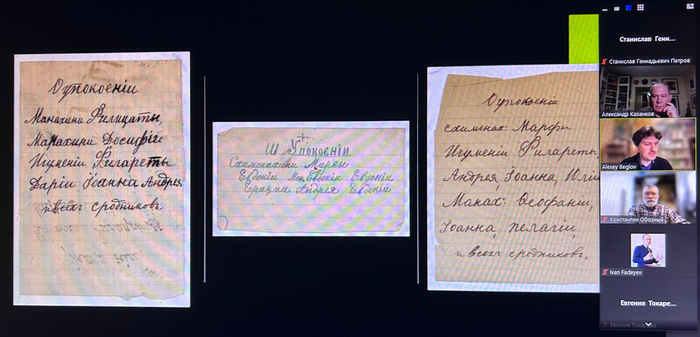 О упокоеніи
Монахини Филицаты
Монахини Досифеи
Игуменіи Филареты
Даріи Іоанна Андрея
и всѣхъ сродниковъ
Ѡ Упокоєнїи
Схимонахини Марѳы
Евдокіи Мон. Евдокіи Евдокіи
Андрея Евдокіи
О упокоеніи
схимонах. Марѳы
Игуменіи Филареты
Андрея, Іоанна,
Монах. Ѳеофаніи,
Іоанна, Пелагіи
и всѣхъ сродниковъ.
Станислав Генн...
Станислав Геннадьевич Петров
Александр Казанков
Alexey Beglov
Константин Обозный
Ivan Fadeyev
Евгения Токаре...